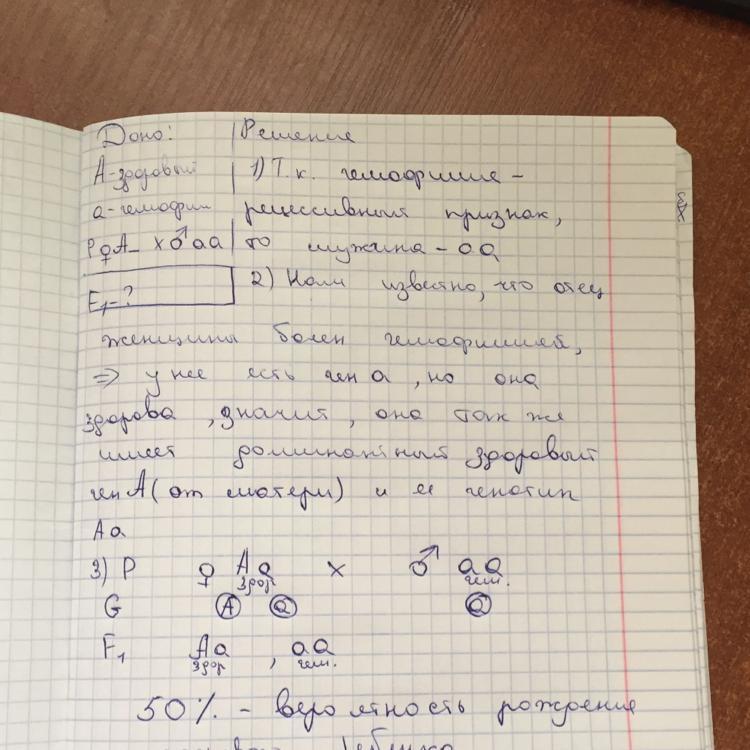 Дано: Решение
А-здоровый 1) Т.к. гемофилия -
а-гемофил рецессивный признак,
P ♀A_ x ♂аа то мужчина - аа
F₁-? 2) Нам известно, что отец
женщины болен гемофилией,
=> у нее есть ген а, но она
здорова, значит, она так же
имеет доминантный здоровый
ген А (от матери) и ее генотип
Аа
3) P ♀ Аа x ♂ аа
здор. гем.
G А а а
F₁ Аа, аа
здор. гем.
50% - вероятность рождения
ребенка